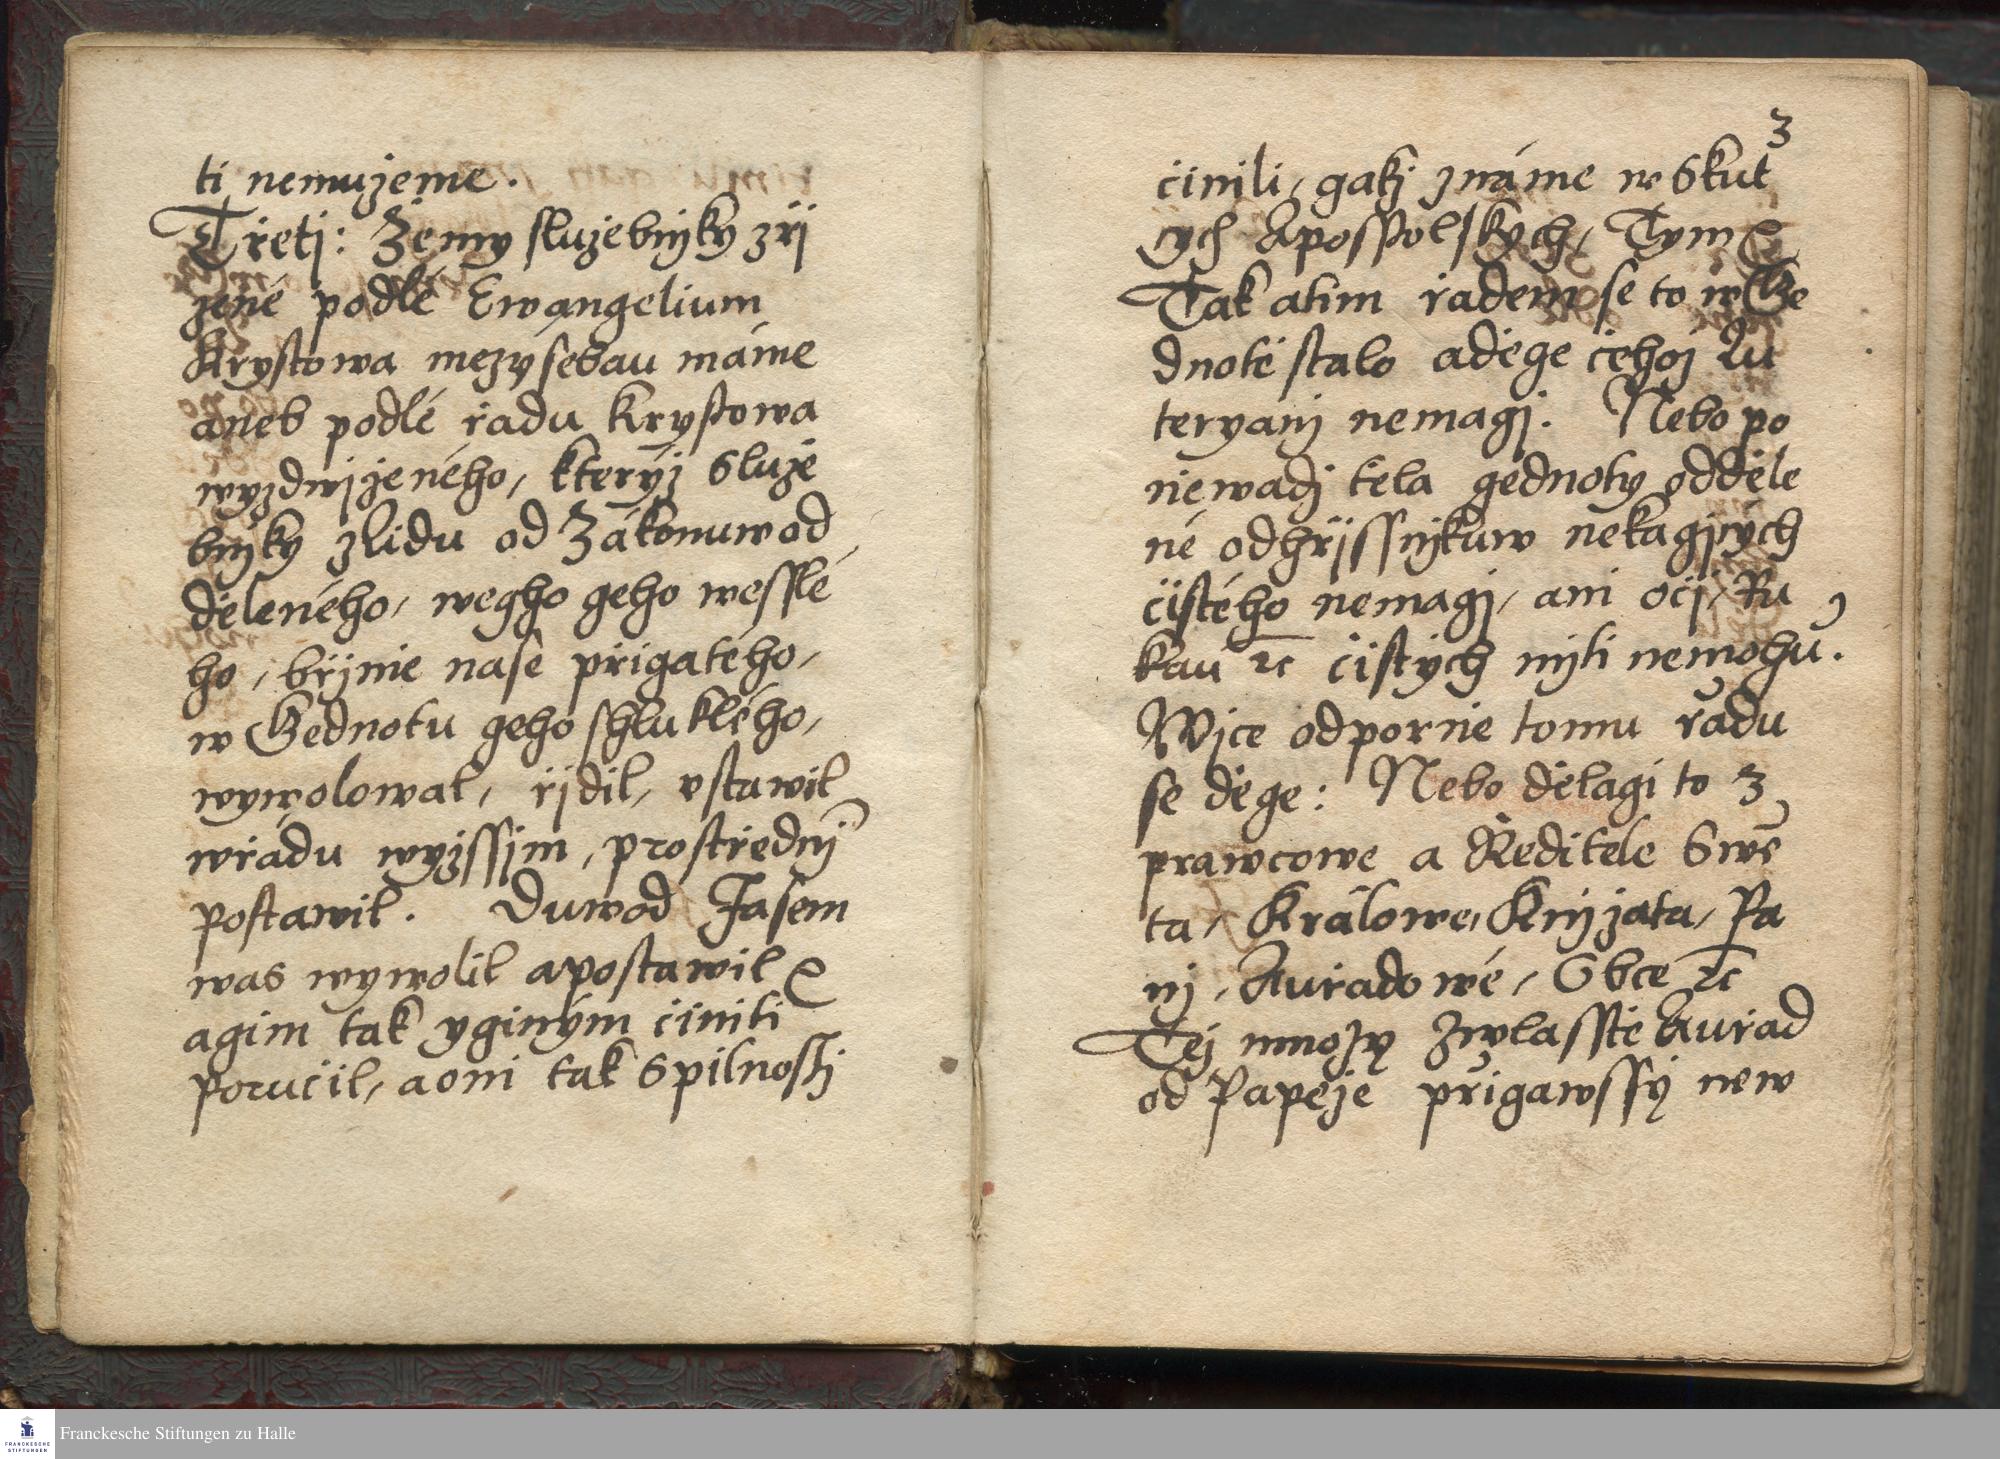 ti nemużeme.
Třetj: Żemy służebnjky zřj
żené podlé Ewangelium
Krystowa mezy sebau máme
aneb podlé řádu Krystowa
wyzdwiżeného, kterýż służe
bnjky zlidu od Zákonuw od
děleného, wegho geho wesslé
ho, břjmě nasě přigatého,
w Gednotu geho shluklého,
wywolowal, řjdil, vstawil
wřádu wyżssjm, prostřednj
postawil. Duwod Jasem
was wywolil apostawil
agim tak yginým činiti
poručil, aoni tak spilnostj
3
činili, gakż známe w Skut
cych Aposstolských, Tym
Tak atim řadem se to w Ge
dnotě stalo aděge čehoż Lu
teryanj nemagj. Nebo po
něwadż těla gednoty odděle
né odhřjssnjkuw nekagjcych
čistého nemagj, ani očj, Ru
kau ꝛc čistých mjti nemohú.
Wjce odporně tomu řádu
se děge: Nebo dělagi to z
prawcowe a Ředitele Swě
ta, Králowe, Knjżata, Pa
nj, Auřadowé, Obce ꝛc
Též mnozy Zwlasstě Auřad
od Papeże přigawssy new
Franckesche Stiftungen zu Halle
FRANCKESCHE
STIFTUNGEN